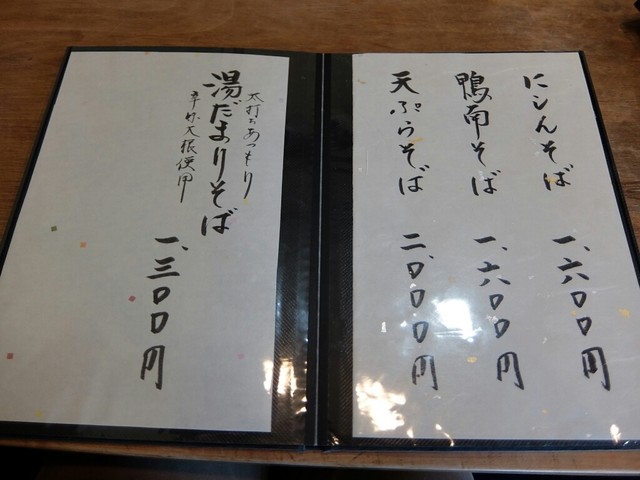 にしんそば 一、六〇〇円
鴨南そば 一、六〇〇円
天ぷらそば 二、〇〇〇円
太打ちあつもり
湯だまりそば
辛味大根使用
一、三〇〇円